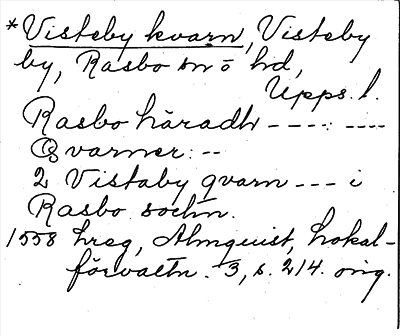 *Visteby kvarn, Visteby
by, Rasbo sn o hd,
Upps. l.
Rasbo häradh ----: ----
Qvarner: --
2 Vistaby qvarn --- i
Rasbo sochn.
1558 hreg, Almquist, Lokal-
förvaltn. 3, s. 214. orig.